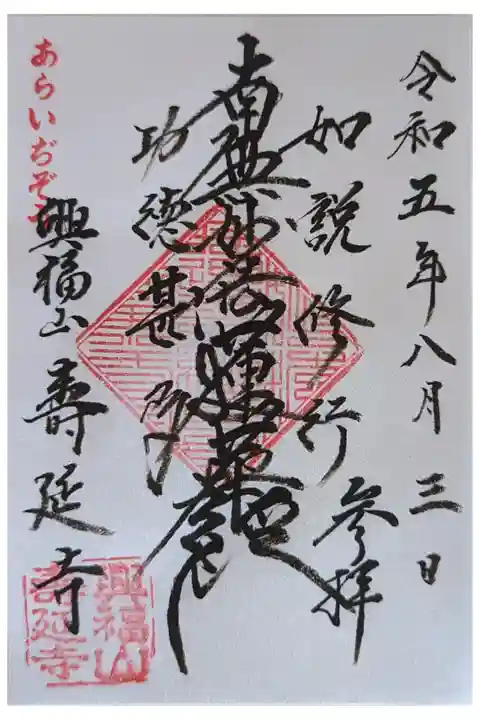 令和五年八月三日
参拝
如説修行
南無妙法蓮華經
功徳甚多
興福山壽延寺
あらいぢぞう
興福山
壽延寺